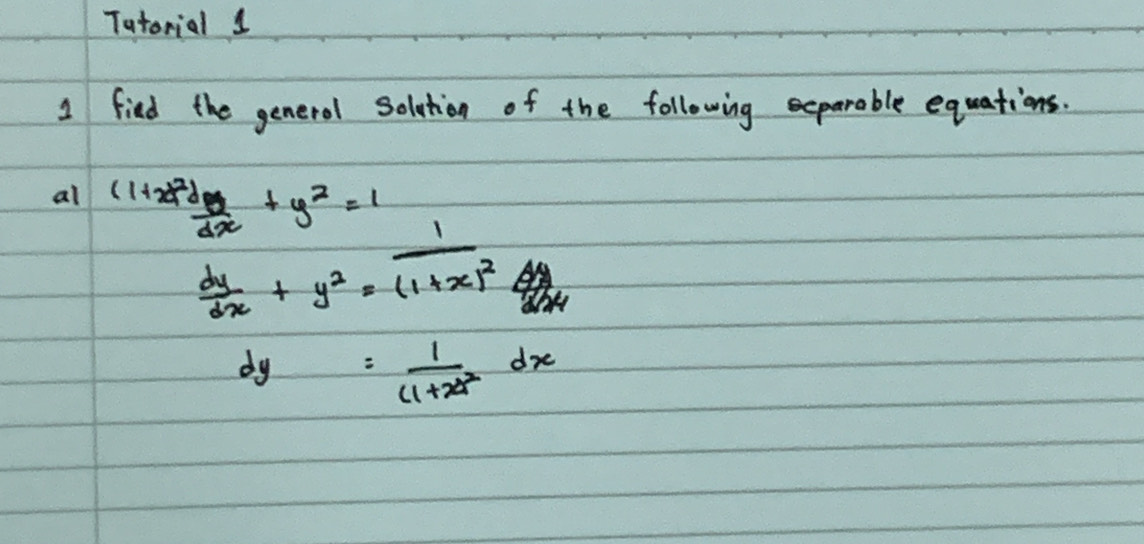 Tutorial 1
1 find the general Solution of the following separable equations.
a) (1+x)² dy/dx + y² = 1
dy/dx + y² = 1/(1+x)²
dy = 1/(1+x)² dx